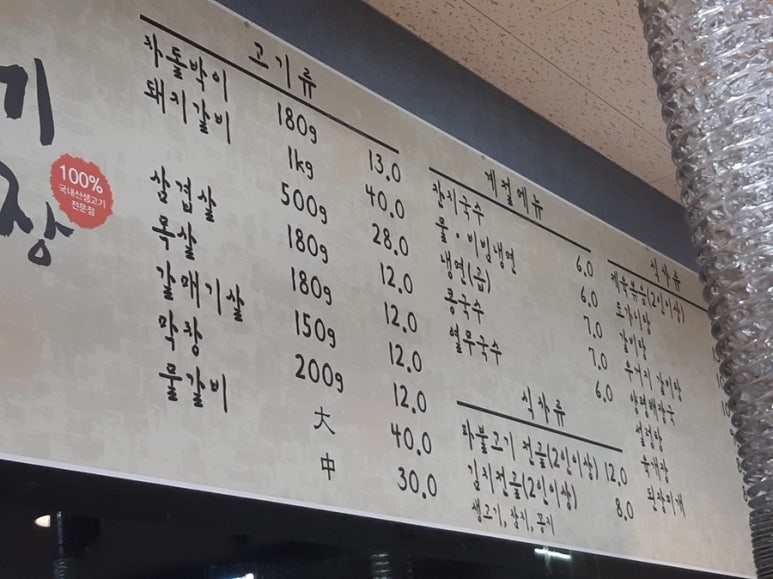 기
장
100%
국내산생고기
전문점
고기류
차돌박이 180g 13.0
돼지갈비 1kg 40.0
500g 28.0
삼겹살 180g 12.0
목살 180g 12.0
갈매기살 150g 12.0
막창 200g 12.0
물갈비 大 40.0
中 30.0
계절메뉴
잔치국수 6.0
물·비빔냉면 6.0
냉면(곱) 7.0
콩국수 7.0
열무국수 6.0
식사류
파불고기 전골(2인이상) 12.0
김치전골(2인이상) 8.0
생고기, 참치, 꽁치
식사류
제육볶음(2인이상)
도가니탕
갈비탕
우거지 갈비탕
양평해장국
설렁탕
육개장
된장찌개